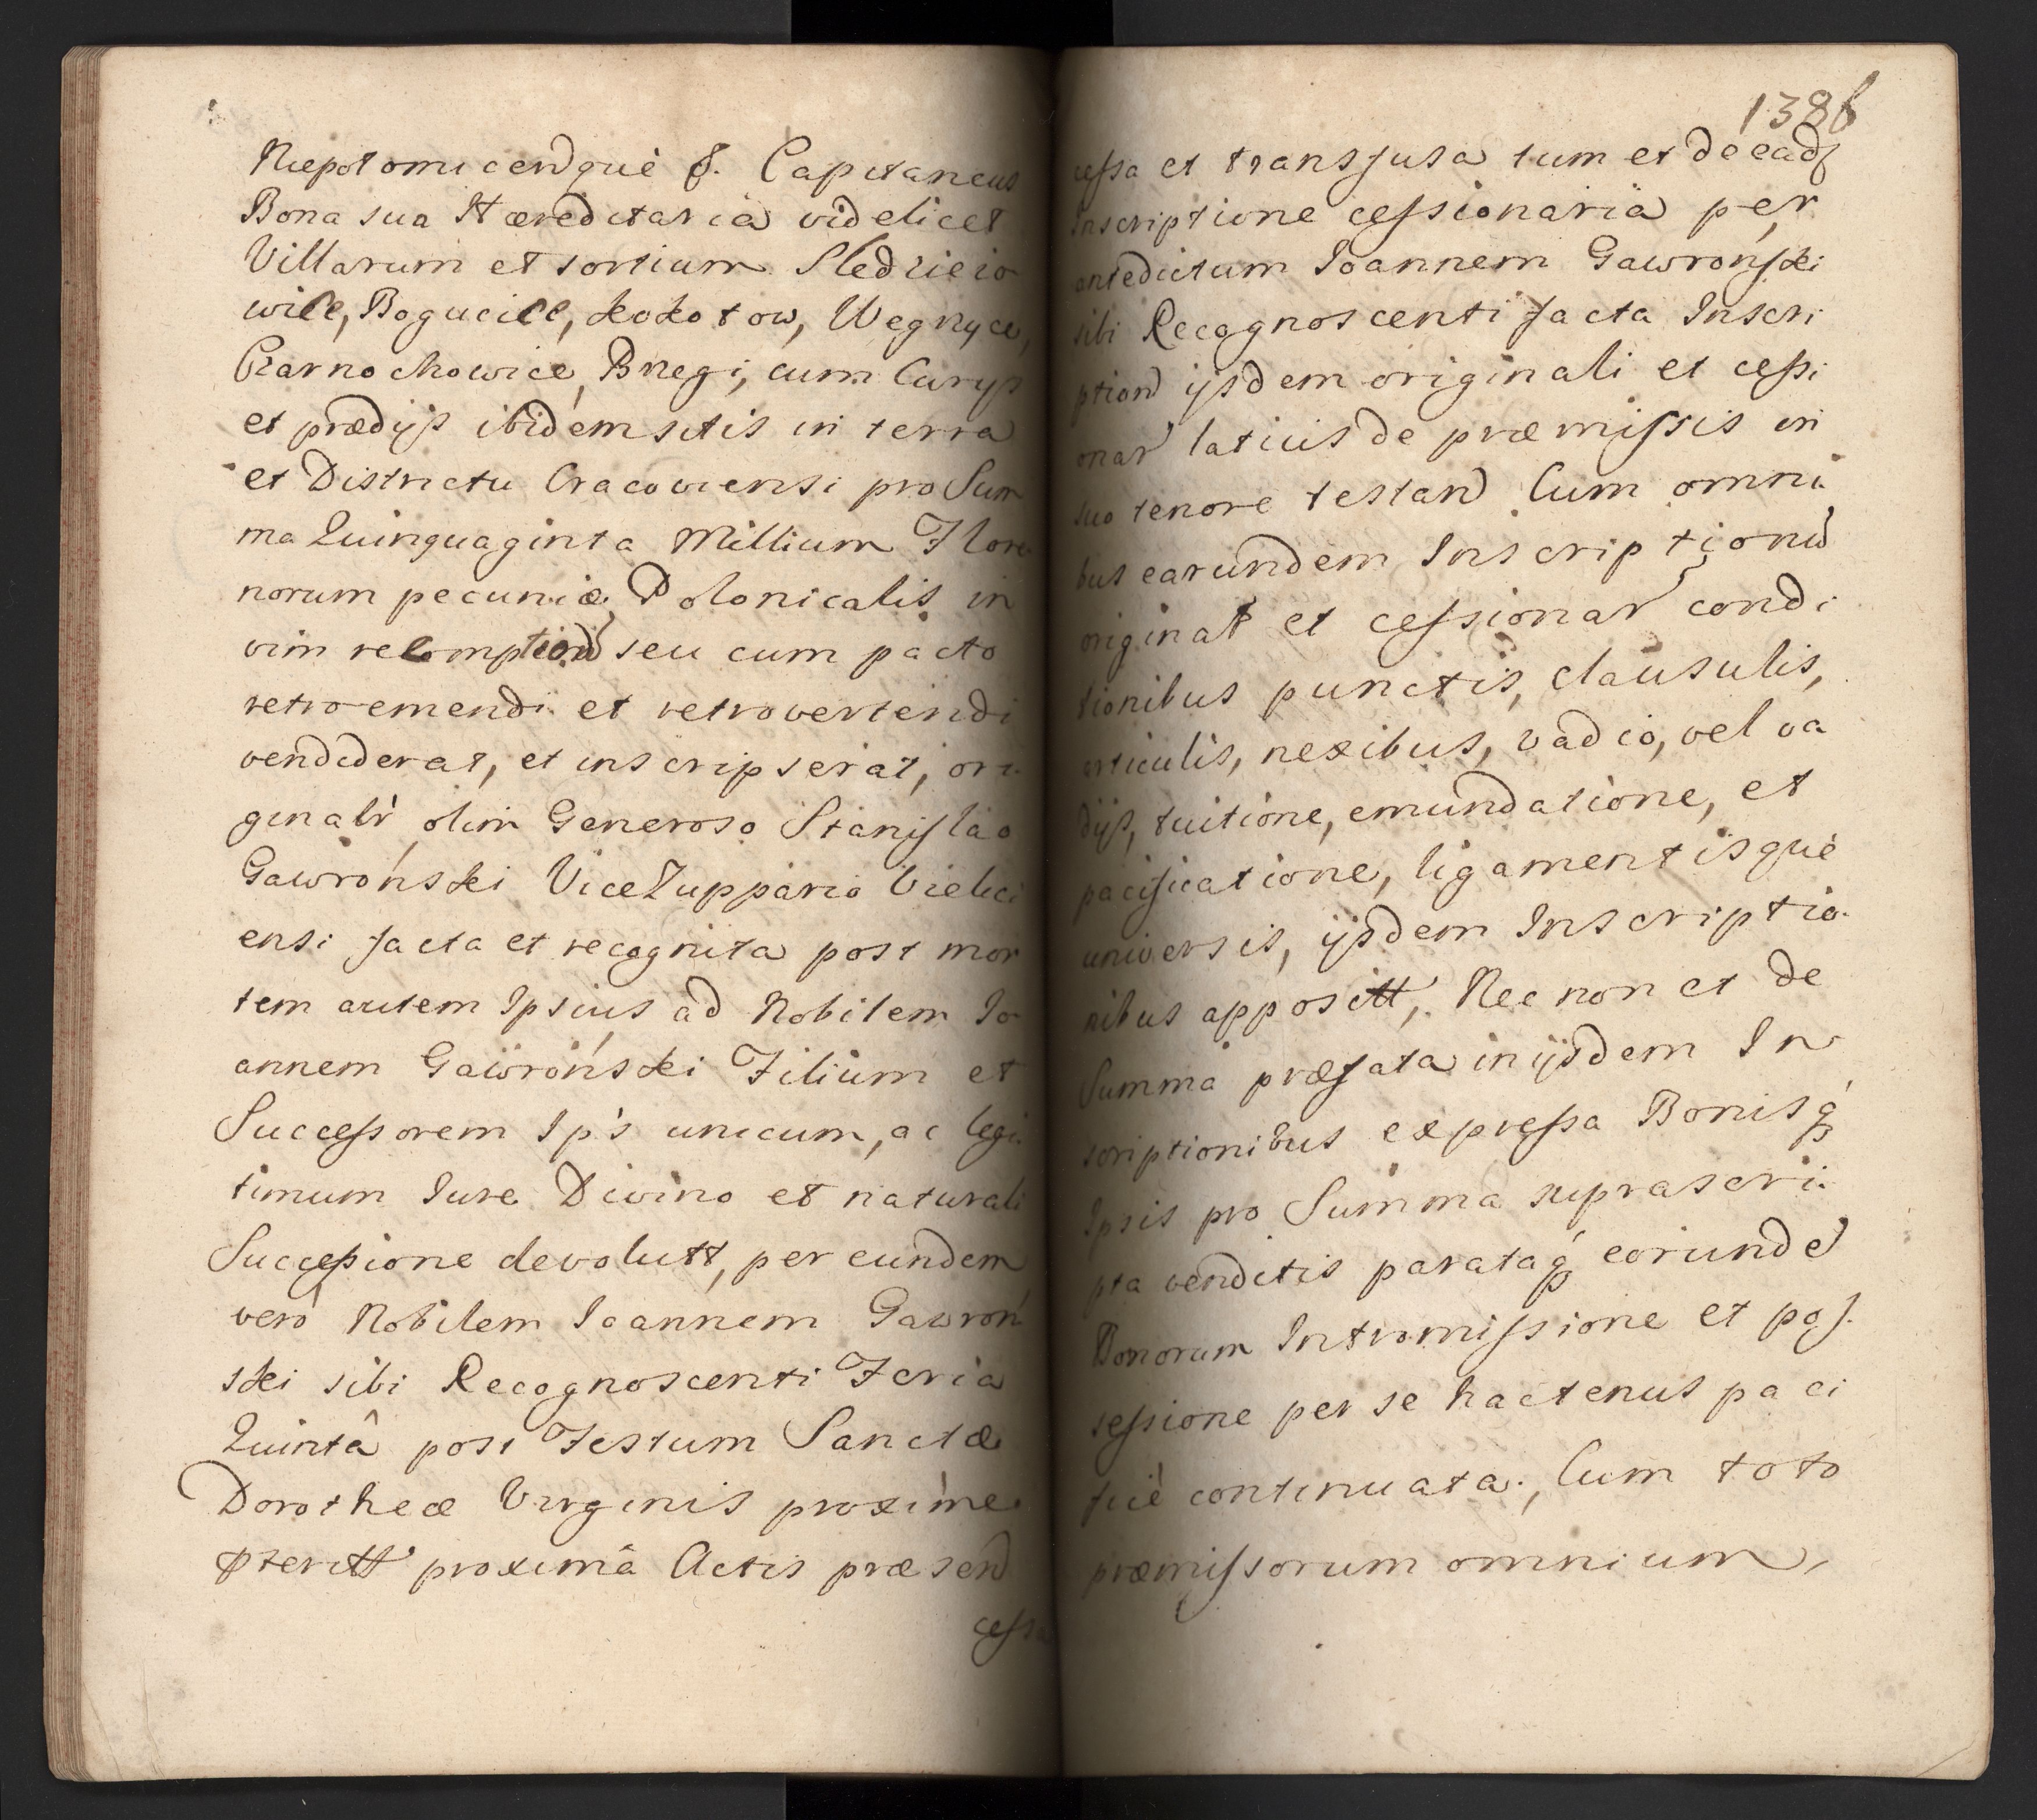 Niepołomicendquè &. Capitaneus
Bona sua Hæreditaria videlicet
Villarum et sortium Sledzieio
wice, Bogucice, kokotow, Wegrzyce,
Czarnochowice, Brzegi, cum Curys
et prædijs ibidem sitis in terra
et Districtu Cracoviensi pro Sum
ma Quinquaginta Millium Flore
norum pecuniæ Polonicalis in
vim reemption seu cum pacto
retroemendi et retrovertendi
vendiderat, et inscripserat, ori
ginalr olim Generoso Stanislao
Gawroński ViceZuppario Vielici
ensi facta et recognita post mor
tem autem Ipsius ad Nobilem Jo
annem Gawroński Filium et
Successorem Ips unicum, ac legi
timum Jure Divino et naturali
Successione devolutt, per eundem
vero Nobilem Joannem Gawroń
ski sibi Recognoscenti Feria
Quintâ post Festum Sanctæ
Dorotheæ Virginis proxime
pteritt proximâ Actis præsen
cessa
1386
cessa et transfusa tum et de eadz
Inscriptione cessionaria per
antedictum Joannem Gawroński
sibi Recognoscenti facta Inscri
ption ijsdem originali et cessi
onar latius de præmissis in
suo tenore testan Cum omni
bus earundem Inscriptionu
originat et cessionar condi
tionibus punctis, clausulis,
articulis, nexibus, vadio, vel va
dijs, tuitione, emundatione, et
pacificatione, ligamentisque
universis, ijsdem Inscriptio
nibus appositt, Nec non et de
Summa præfata in ijsdem In
scriptionibus expressa Bonisq
Ipsis pro Summa suprascri
pta venditis parataq eorunde
Bonorum Intromissione et pos
sessione per se hactenus paci
ficè continuata, Cum toto
præmissorum omnium